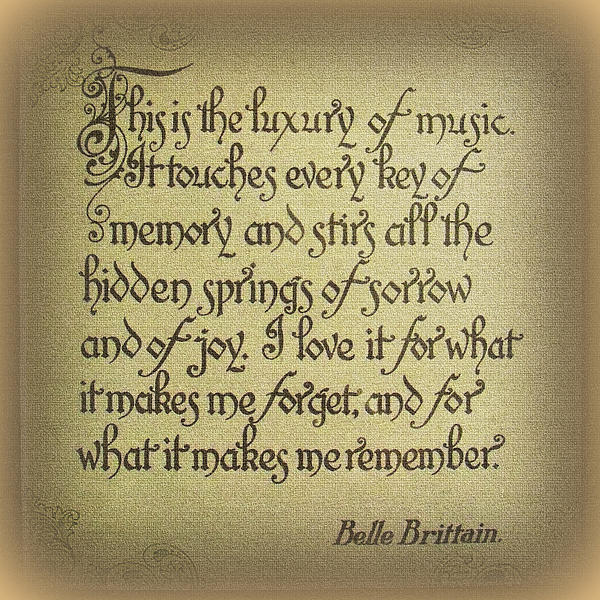 This is the luxury of music.
It touches every key of
memory and stirs all the
hidden springs of sorrow
and of joy. I love it for what
it makes me forget, and for
what it makes me remember.
Belle Brittain.